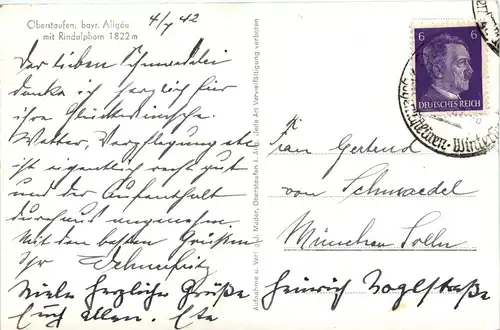 Oberstaufen, bayr. Allgäu
mit Rindalphorn 1822 m
4/7 42
Der lieben
danke ich herzlich für
ihre Glückwünsche.
Wetter, Verpflegung etc
ist eigentlich recht gut
und der Aufenthalt
durchaus angenehm.
Mit den besten Grüßen
Ihr
Viele herzliche Grüße
Euch allen.
Aufnahme u. Verlag J. Mader, Oberstaufen i. A. Jede Art Vervielfältigung verboten
6 6
DEUTSCHES REICH
Frau Gertrud
von Schwaedel
München Solln
Heinrich Voglstraße